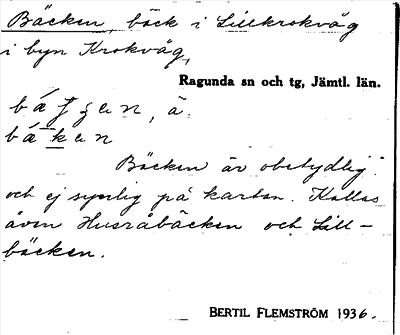 Bäcken, bäck i Lillkrokvåg
i byn Krokvåg,
Ragunda sn och tg, Jämtl. län.
bäcken, ä.
bäken
Bäcken är obetydlig
och ej synlig på kartan. Kallas
även Husråbäcken och Lill-
bäcken.
BERTIL FLEMSTRÖM 1936.